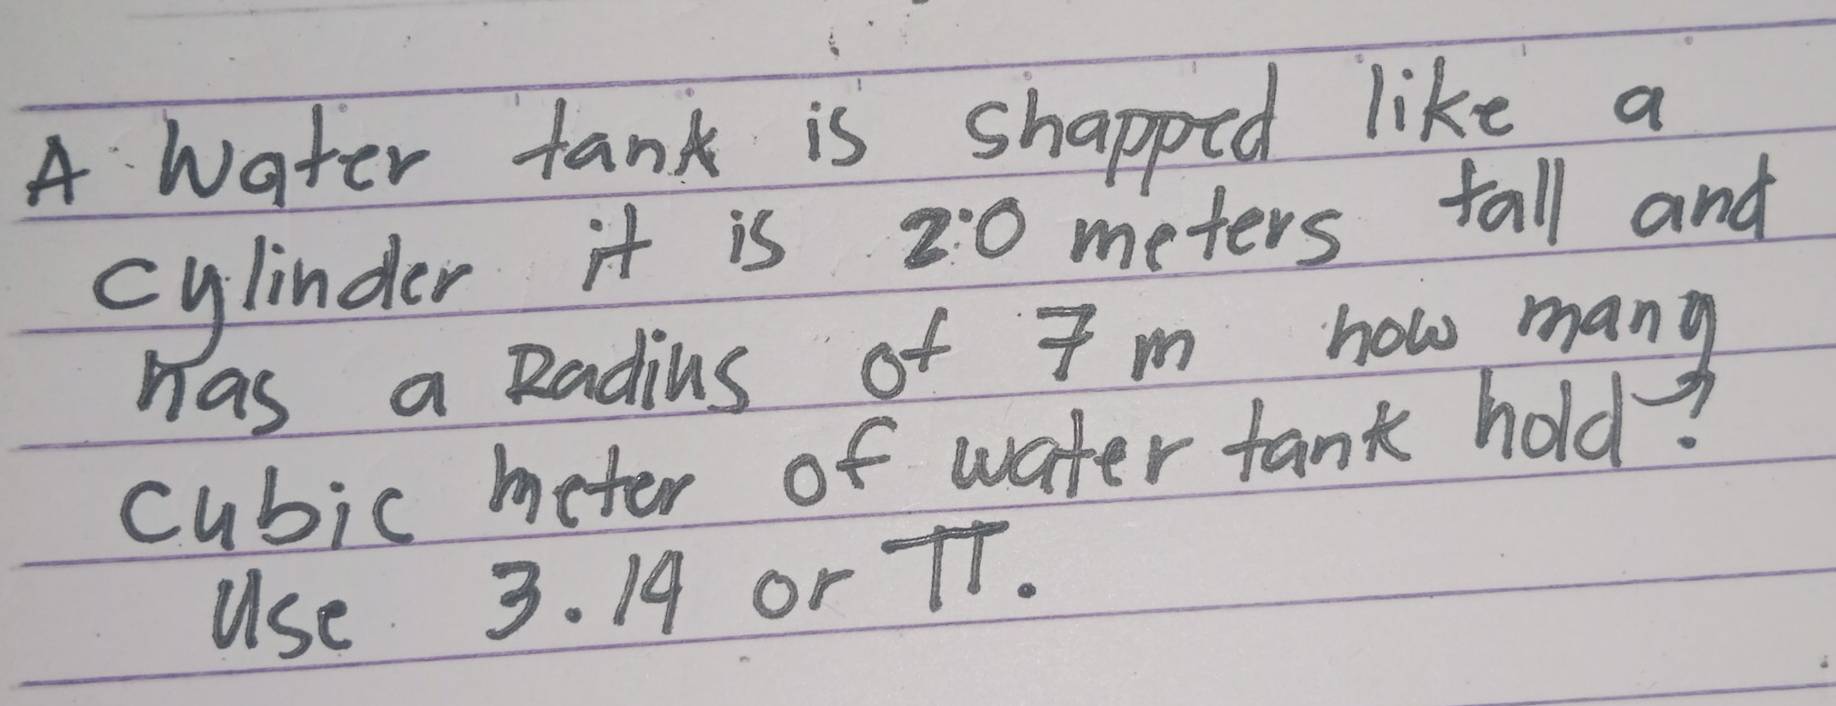 A Water tank is shapped like a
cylinder it is 2.0 meters tall and
has a Radius of 7 m how many
cubic meter of water tank hold?
Use 3.14 or π.